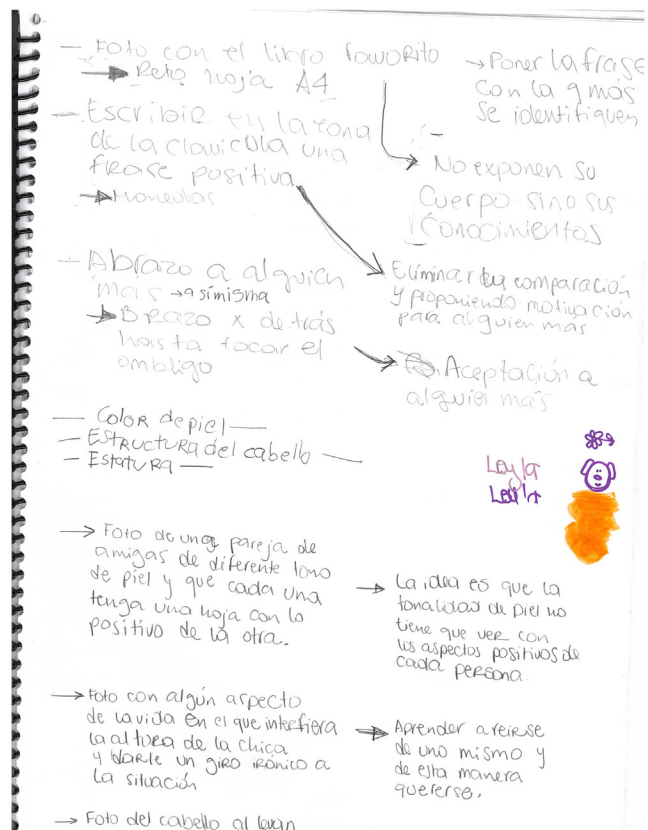 — Foto con el libro favorito
→ Reto hoja A4
→ Poner la frase
con la q más
se identifiquen
— Escribir en la zona
de la clavicula una
frase positiva
→ Monedas
No exponen su
cuerpo sino sus
conocimientos
— Abrazo a alguien
más → a símisma
→ Brazo x detrás
hasta tocar el
ombligo
Eliminar la comparación
y proponiendo motivación
para alguien más
Aceptación a
alguien más
— Color de piel —
— Estructura del cabello —
— Estatura —
Leyla
Leyla
→ Foto de una pareja de
amigas de diferente tono
de piel y que cada una
tenga una hoja con lo
positivo de la otra.
→ La idea es que la
tonalidad de piel no
tiene que ver con
los aspectos positivos de
cada persona
→ Foto con algún aspecto
de la vida en el que interfiera
la altura de la chica
y darle un giro irónico a
la situación
→ Aprender a reirse
de uno mismo y
de esta manera
quererse.
→ Foto del cabello al